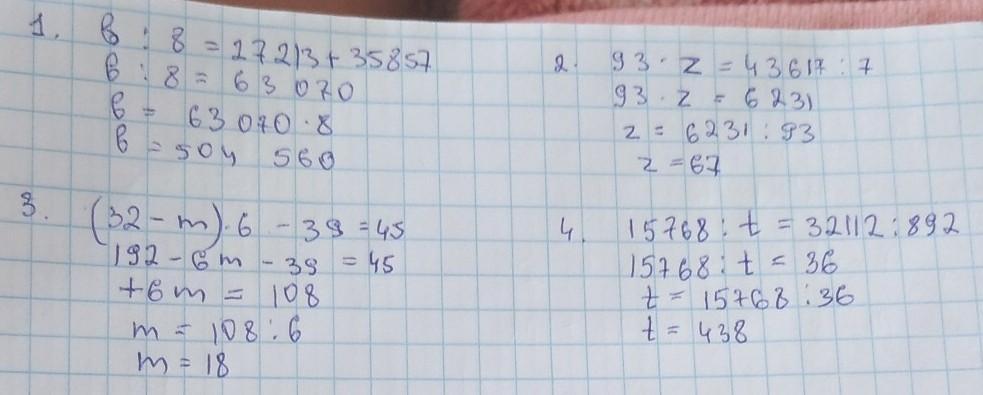 1. в : 8 = 27 213 + 35857
в : 8 = 63 070
в = 63 070 · 8
в = 504 560
2. 93 · z = 43617 : 7
93 · z = 6231
z = 6231 : 93
z = 67
3. (32 - m) · 6 - 39 = 45
192 - 6m - 39 = 45
+6m = 108
m = 108 : 6
m = 18
4. 15768 : t = 32112 : 892
15768 : t = 36
t = 15768 : 36
t = 438